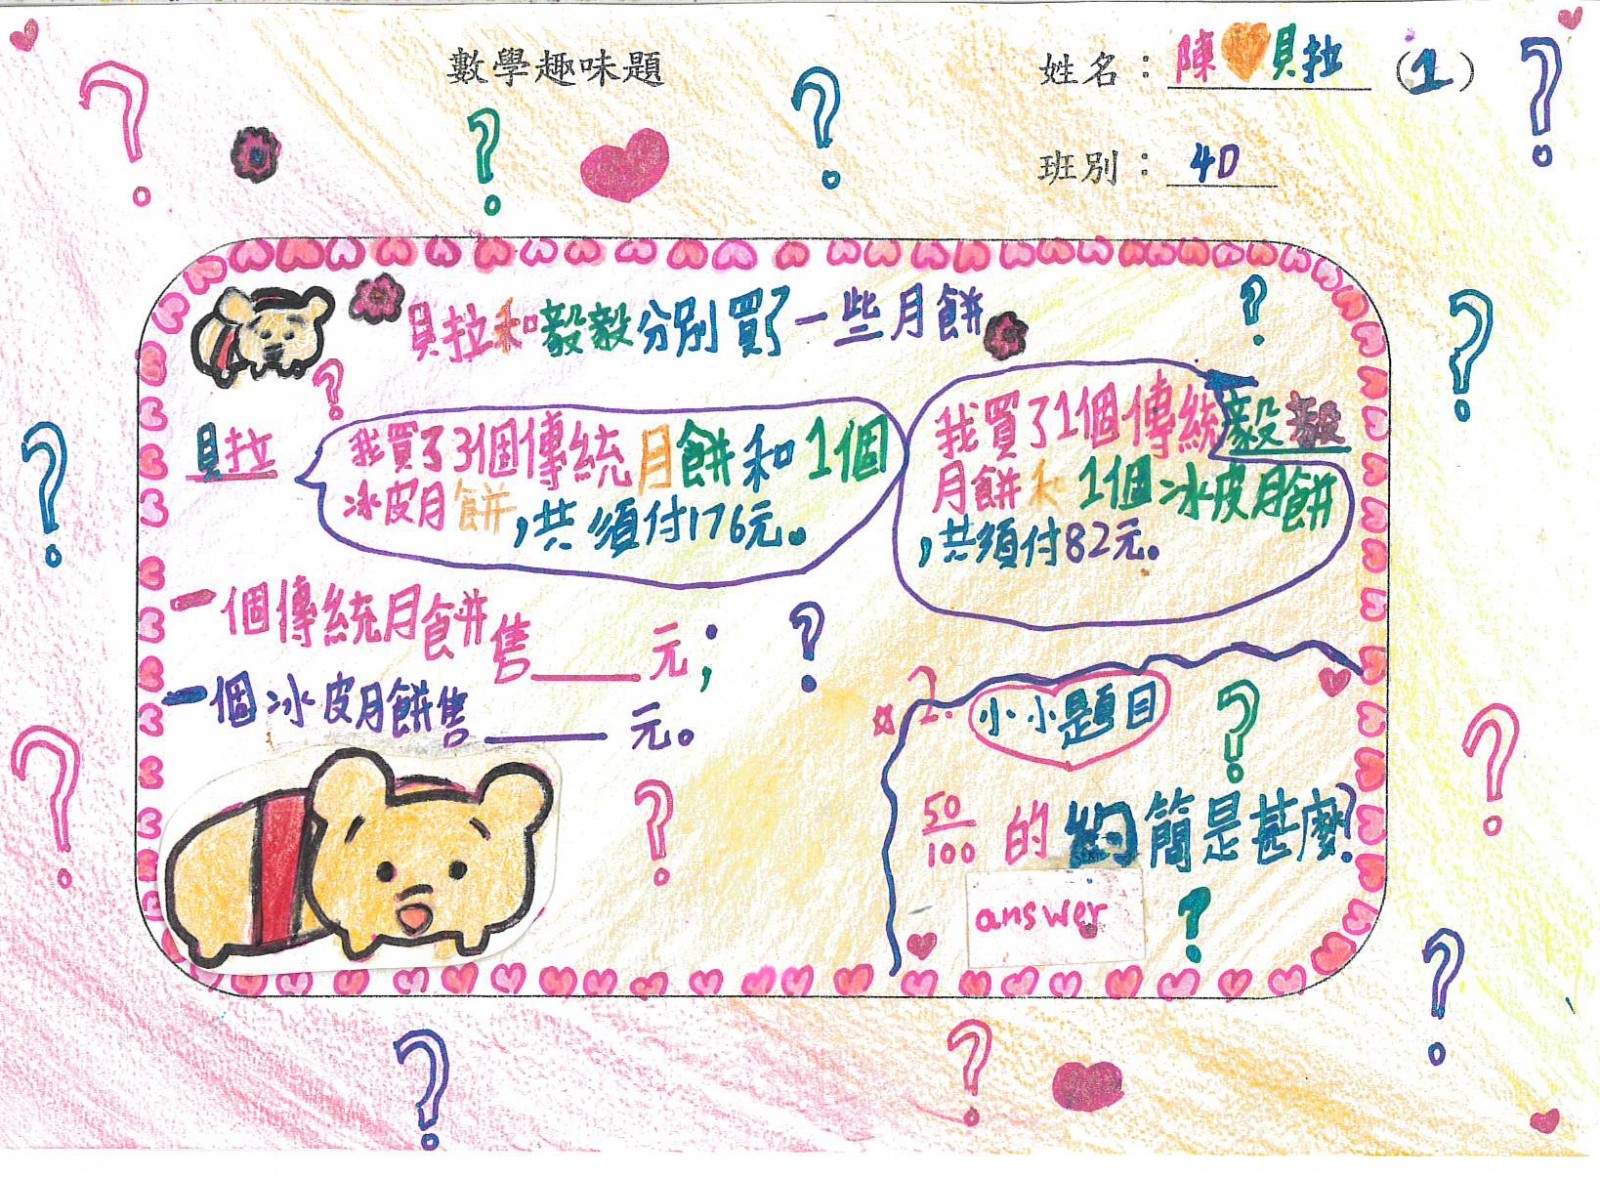 數學趣味題
姓名：陳貝拉 (1)
班別：4D
貝拉和毅毅分別買了一些月餅
貝拉
我買了3個傳統月餅和1個
冰皮月餅，共須付176元。
毅毅
我買了1個傳統
月餅和1個冰皮月餅
，共須付82元。
一個傳統月餅售____元；
一個冰皮月餅售____元。
2. 小小題目
50/100 的約簡是甚麼？
answer